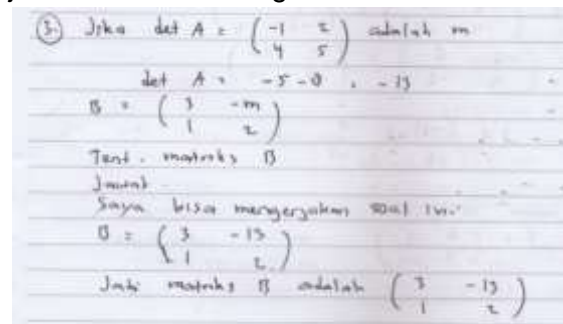 ③ Jika det A = ( -1 2 ) adalah m
( 4 5 )
det A = -5 - 8 = -13
B = ( 3 -m )
( 1 2 )
Tent. matriks B
Jawab
Saya bisa mengerjakan soal ini.
B = ( 3 -13 )
( 1 2 )
Jadi matriks B adalah ( 3 -13 )
( 1 2 )